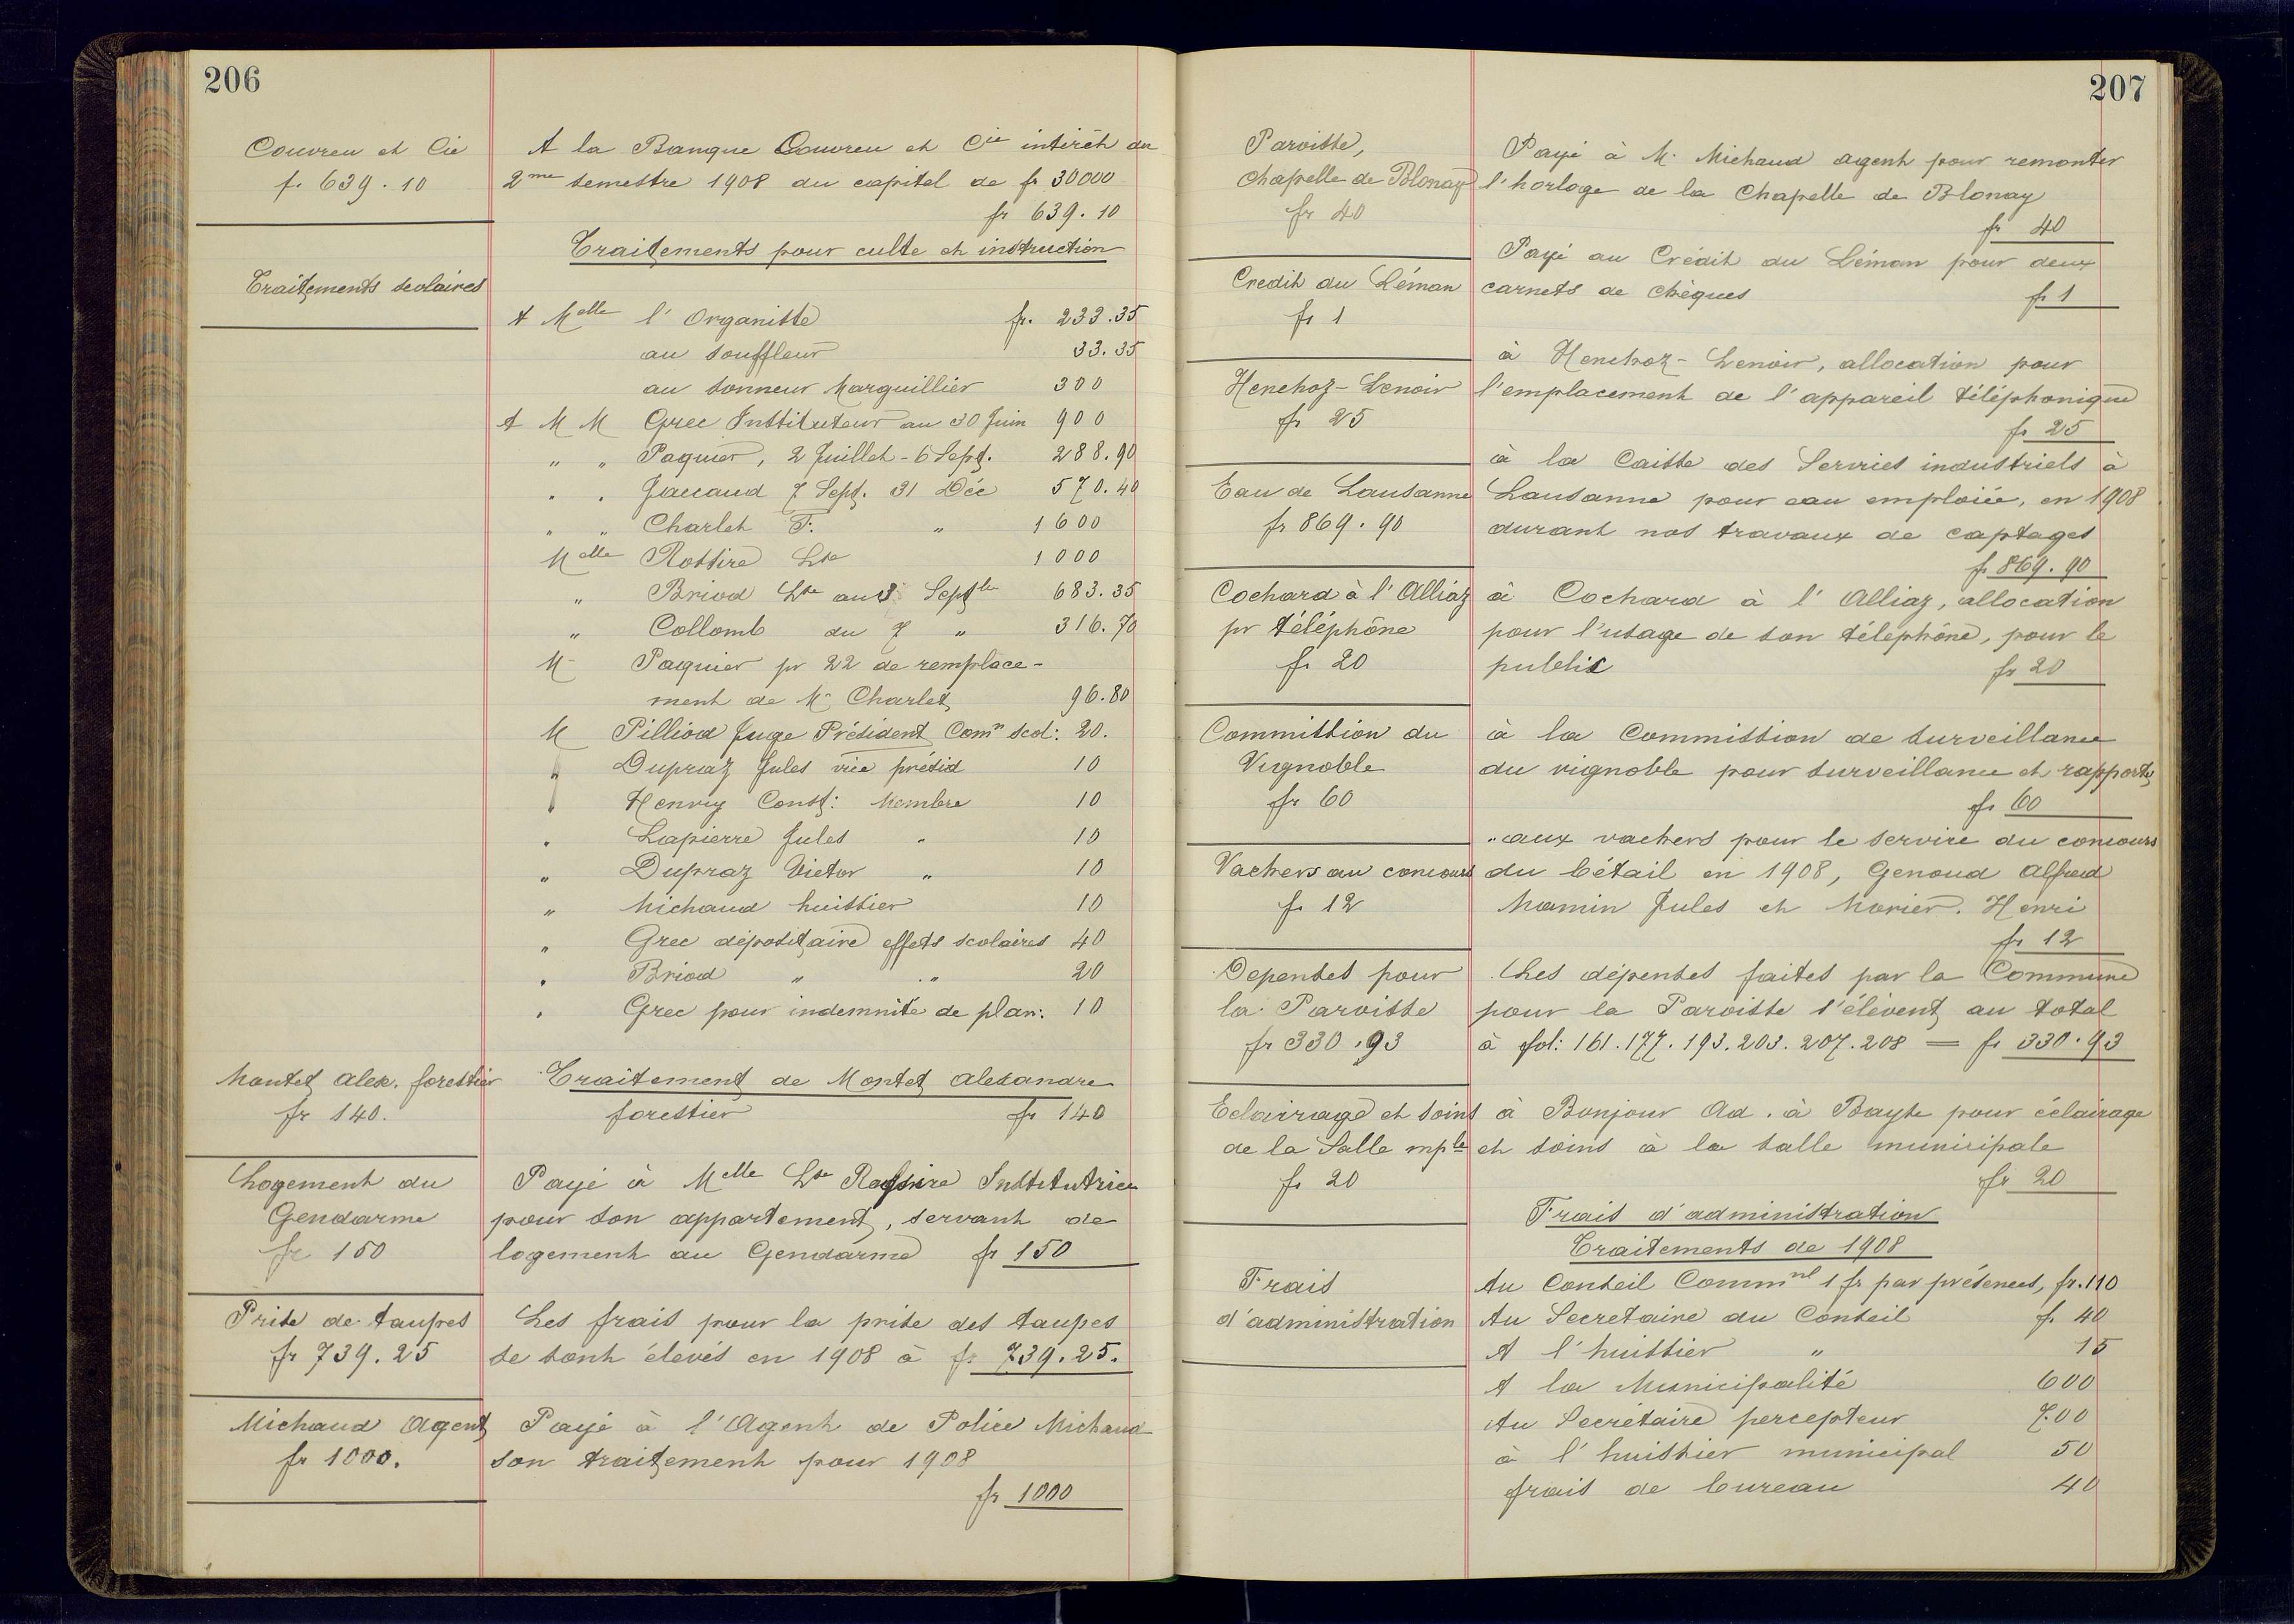 206
Couvreu et Cie
fr. 639.10
A la Banque Couvreu et Cie intérêt du
2me semestre 1908 du capital de fr 30000
fr 639.10
Traitements pour culte et instruction
Traitements scolaires
A Melle l'Organiste fr. 233.35
au souffleur 33.35
au sonneur Marguillier 300
A M M Grec Instituteur au 30 Juin 900
" " Paquier, 2 Juillet - 6 Sept. 288.90
" " Jaccaud 7 Sept. 31 Déc 570.40
" " Charlet F. " 1600
Melle Rossire Lse 1000
" Briod Lse au 3 Septbre 683.35
" Collomb du 7 " 316.70
M Paquier pr 22 de remplace-
ment de Mr Charlet 96.80
M Pilliod Juge Président Comn scol: 20.
" Dupraz Jules vice présid 10
" Henry Const: Membre 10
" Lapierre Jules " 10
" Dupraz Victor " 10
" Michaud huissier 10
" Grec dépositaire effets scolaires 40
" Briod " " 20
" Grec pour indemnité de plan: 10
Montet Alex. forestier
fr 140.
Traitement de Montet Alexandre
forestier fr 140
Logement du
Gendarme
fr 150
Payé à Melle Lse Rossire Institutrice
pour son appartement, servant de
logement au Gendarme fr 150
Prise de taupes
fr 739.25
Les frais pour la prise des taupes
se sont élevés en 1908 à fr 739.25.
Michaud Agent
fr 1000.
Payé à l'Agent de Police Michaud
son traitement pour 1908
fr 1000
207
Paroisse,
Chapelle de Blonay
fr 40
Payé à M. Michaud agent pour remonter
l'horloge de la Chapelle de Blonay
fr 40
Credit du Léman
fr 1
Payé au Crédit du Léman pour deux
carnets de chèques fr 1
Henchoz-Lenoir
fr 25
à Henchoz-Lenoir, allocation pour
l'emplacement de l'appareil téléphonique
fr 25
Eau de Lausanne
fr 869.90
à la Caisse des Services industriels à
Lausanne pour eau emploiée, en 1908
durant nos travaux de captages
fr 869.90
Cochard à l'Alliaz
pr téléphône
fr 20
à Cochard à l'Alliaz, allocation
pour l'usage de son téléphône, pour le
public fr 20
Commission du
Vignoble
fr 60
à la Commission de surveillance
du vignoble pour surveillance et rapports
fr 60
Vachers au concours
fr 12
" aux vachers pour le service du concours
du bétail en 1908, Genoud Alfred
Mamin Jules et Morier. Henri
fr 12
Depenses pour
la Paroisse
fr 330.93
Les dépenses faites par la Commune
pour la Paroisse s'élèvent au total
à fol: 161.177.193.203.207.208 = fr 330.93
Eclairage et soins
de la Salle mple
fr 20
à Bonjour Ad. à Bayse pour éclairage
et soins à la salle municipale
fr 20
Frais d'administration
Traitements de 1908
Frais
d'administration
Au Conseil Commnl 1 fr par présences, fr.110
Au Secretaire du Conseil fr. 40
A l'huissier " 15
A la Municipalité 600
Au Secrétaire percepteur 700
à l'huissier municipal 50
frais de bureau 40